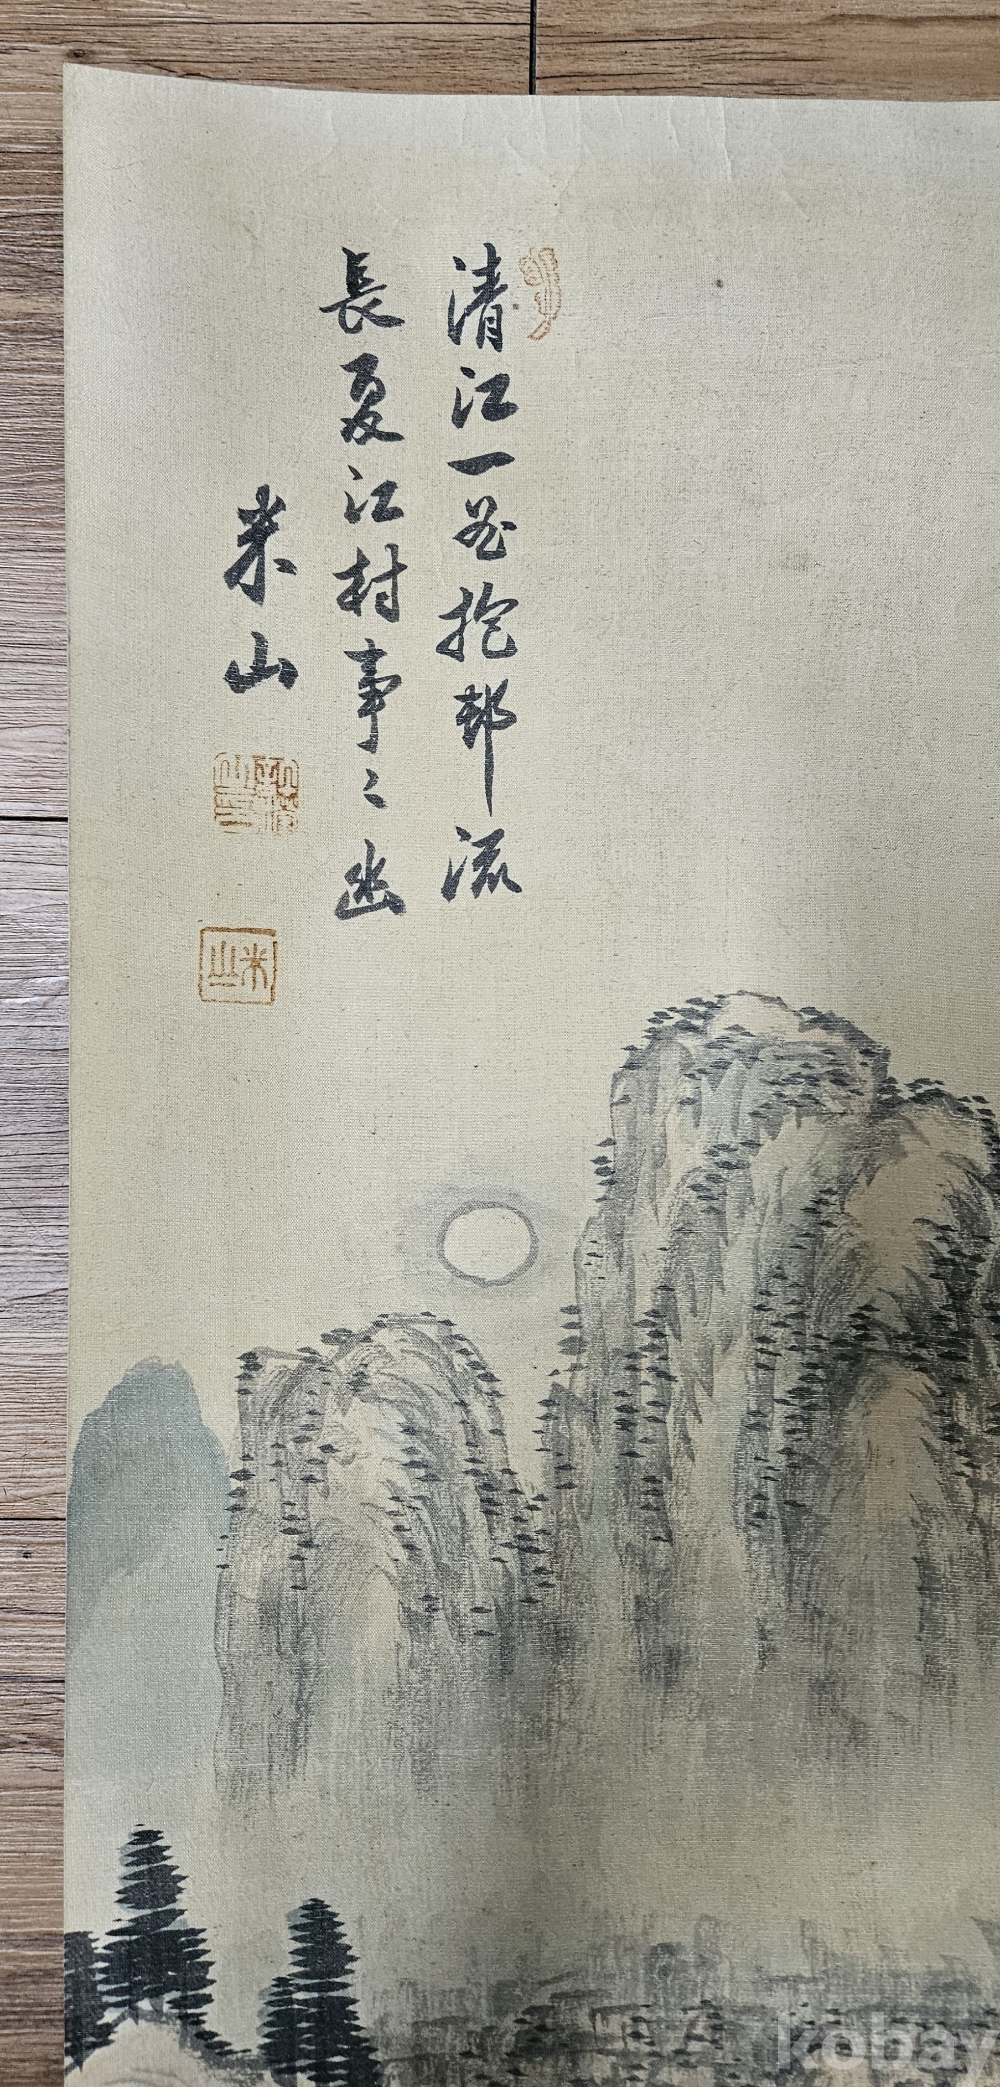 清江一曲抱邨流
長夏江村事〻幽
米山
米山
kobay